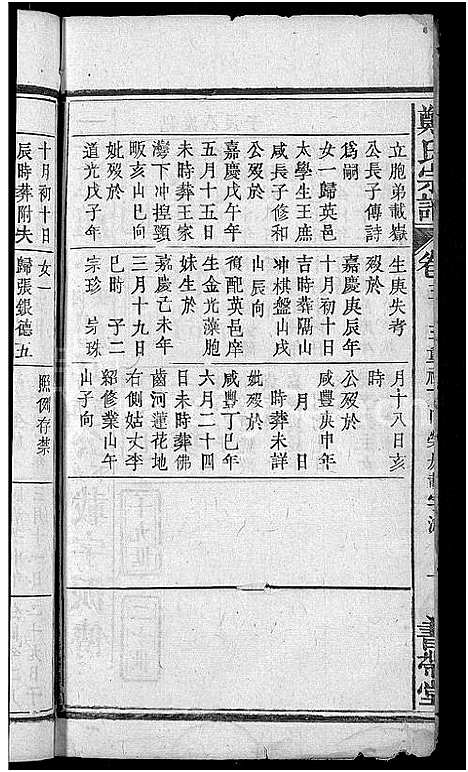 鄭氏宗譜
卷
書帶堂
立胞弟載嶽
公長子傳詩
爲嗣
女一歸英邑
太學生王庶
咸長子修和
公歿於
嘉慶戊午年
五月十五日
未時葬王家
灣下冲捏頸
畈亥山巳向
妣歿於
道光戊子年
生庚失考
歿於
嘉慶庚辰年
十月初十日
吉時葬隔山
冲棋盤山戌
山辰向
復配英邑庠
生金光藻胞
妹生於
嘉慶己未年
三月十九日
巳時 子二
宗珍 宗珠
月十八日亥
時
公歿於
咸豐庚申年
月 日
時葬未詳
妣歿於
咸豐丁巳年
六月二十四
日未時葬佛
齒河蓮花地
右側姑丈李
紹修業山午
山子向
十月初十日
辰時葬附夫
女一
歸張銀德五
照例存禁